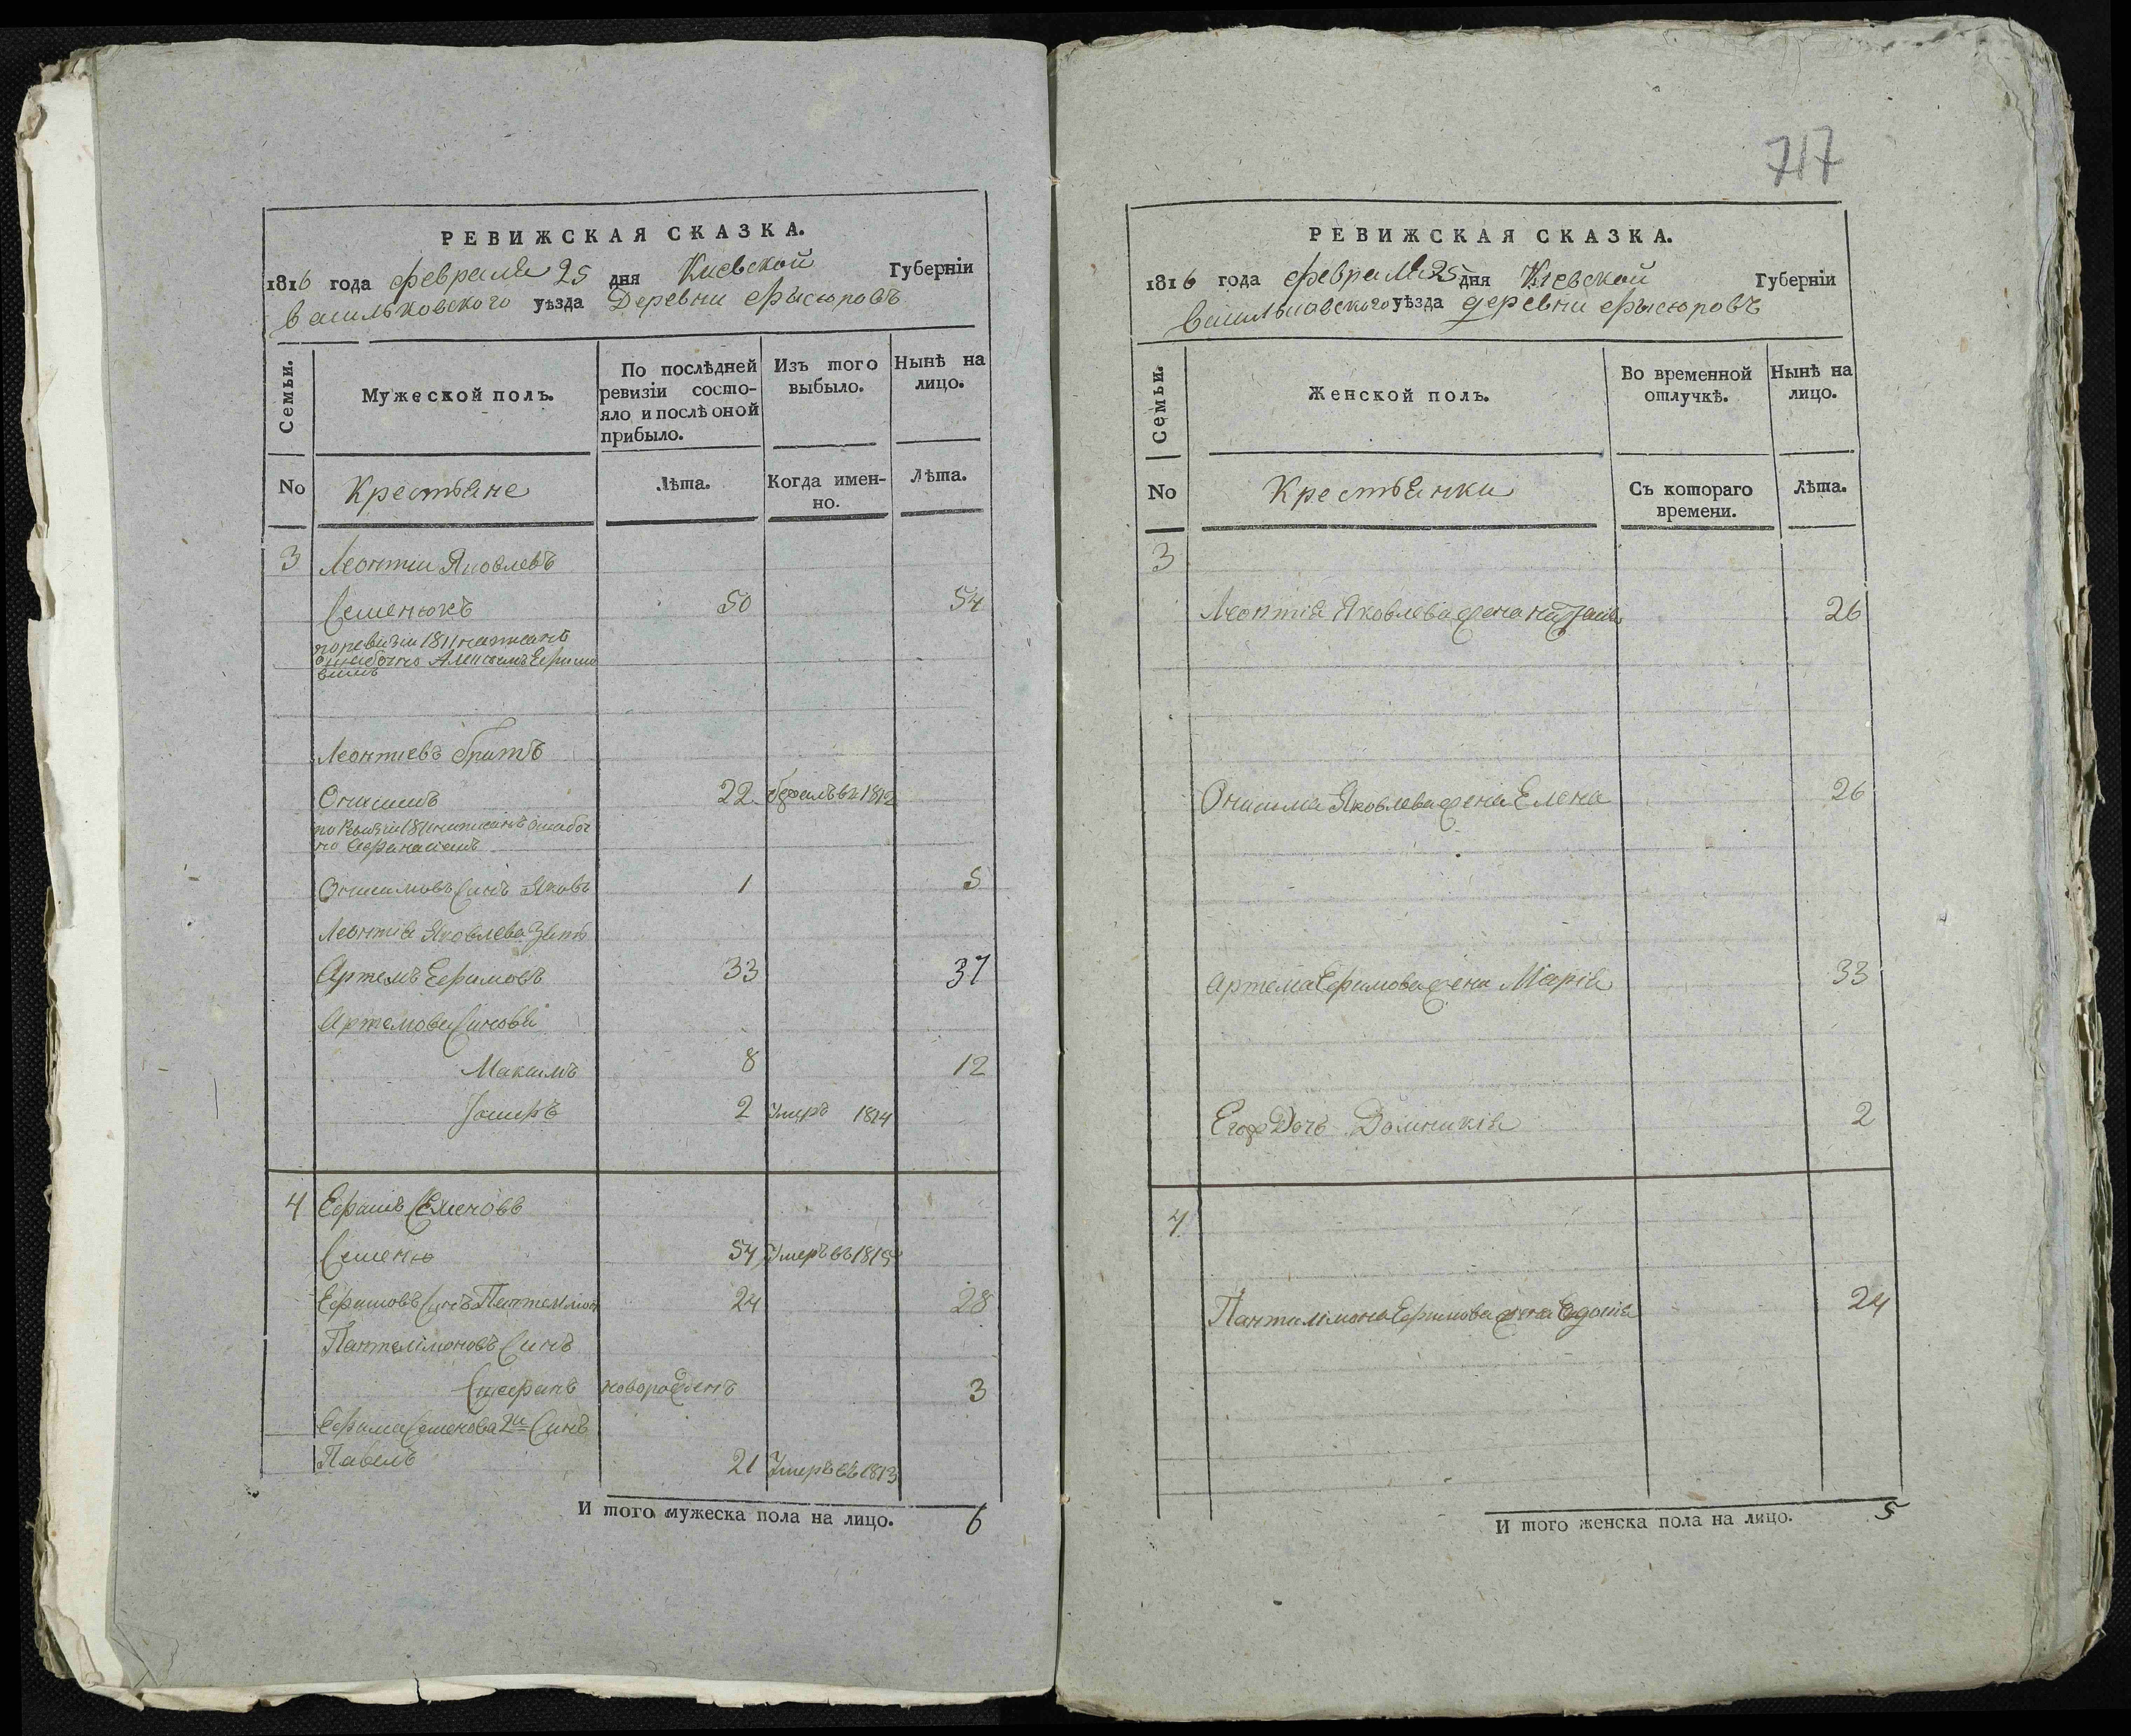 РЕВИЖСКАЯ СКАЗКА.
1816 года февраля 25 дня Киевской Губерніи
Васильковского уѣзда Деревни Фысюровъ
Семьи.
Мужеской полъ.
По послѣдней ревизіи состо-
яло и послѣ оной
прибыло.
Изъ того
выбыло.
Нынѣ на
лицо.
No
Крестьяне
Лѣта.
Когда имен-
но.
Лѣта.
3 Леонтии Яковлевъ
Семенюкъ 50 54
по ревизіи 1811 написанъ
ошибочно Алексѣемъ Ефимо
вимъ
Леонтіевъ братъ
Онисимъ 22 бежалъ въ 1812
по Ревизіи 1811 написанъ ошибоч
но Афанасіемъ
Онисимовъ Синъ Яковъ 1 5
Леонтія Яковлева Зять
Артемъ Ефимовъ 33 37
Артемови Синовя
Максимъ 8 12
2 Умеръ 1814
4 Ефимъ Семеновъ
Семеню 54 Умеръ въ 1815
Ефимовъ Синъ Пантелімон 24 28
Пантелімоновъ Синъ
Стефанъ новорожденъ 3
Ефима Семенова 2й Синъ
Павелъ 21 Умеръ въ 1813
И того мужеска пола на лицо. 6
717
РЕВИЖСКАЯ СКАЗКА.
1816 года февраля 25 дня Кіевской Губерніи
Васильковского уѣзда деревни Фысюровъ
Семьи.
Женской полъ.
Во временной
отлучкѣ.
Нынѣ на
лицо.
No
Крестьянки
Съ котораго
времени.
Лѣта.
3
Леонтія Яковлева жена 26
Онисима Яковлева жена Елена 26
Артема Ефимова жена Марія 33
Егожъ Дочь Домникія 2
4
Пантелимона Ефимова жена 24
И того женска пола на лицо. 5